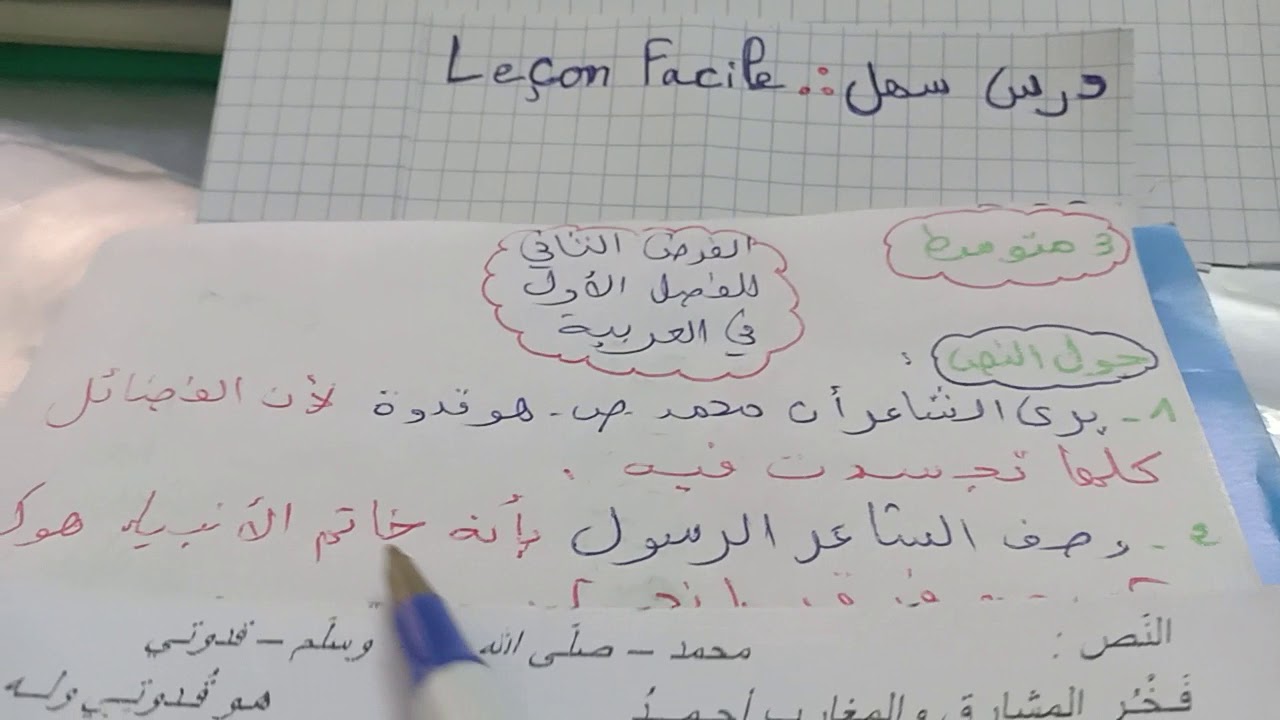 درس سهل :. Leçon Facile
3 متوسط
الفرض الثاني
للفصل الأول
في العربية
حول النص :
1 - يرى الشاعر أن محمد - ص - هو قدوة لأن الفضائل
كلها تجسدت فيه .
2 - وصف الشاعر الرسول بأنه خاتم الأنبياء
النّص : محمد – صلّى الله وسلّم – قدوتي
فَخْرُ المشارق والمغارب أحمدُ هو قُدوتي وله